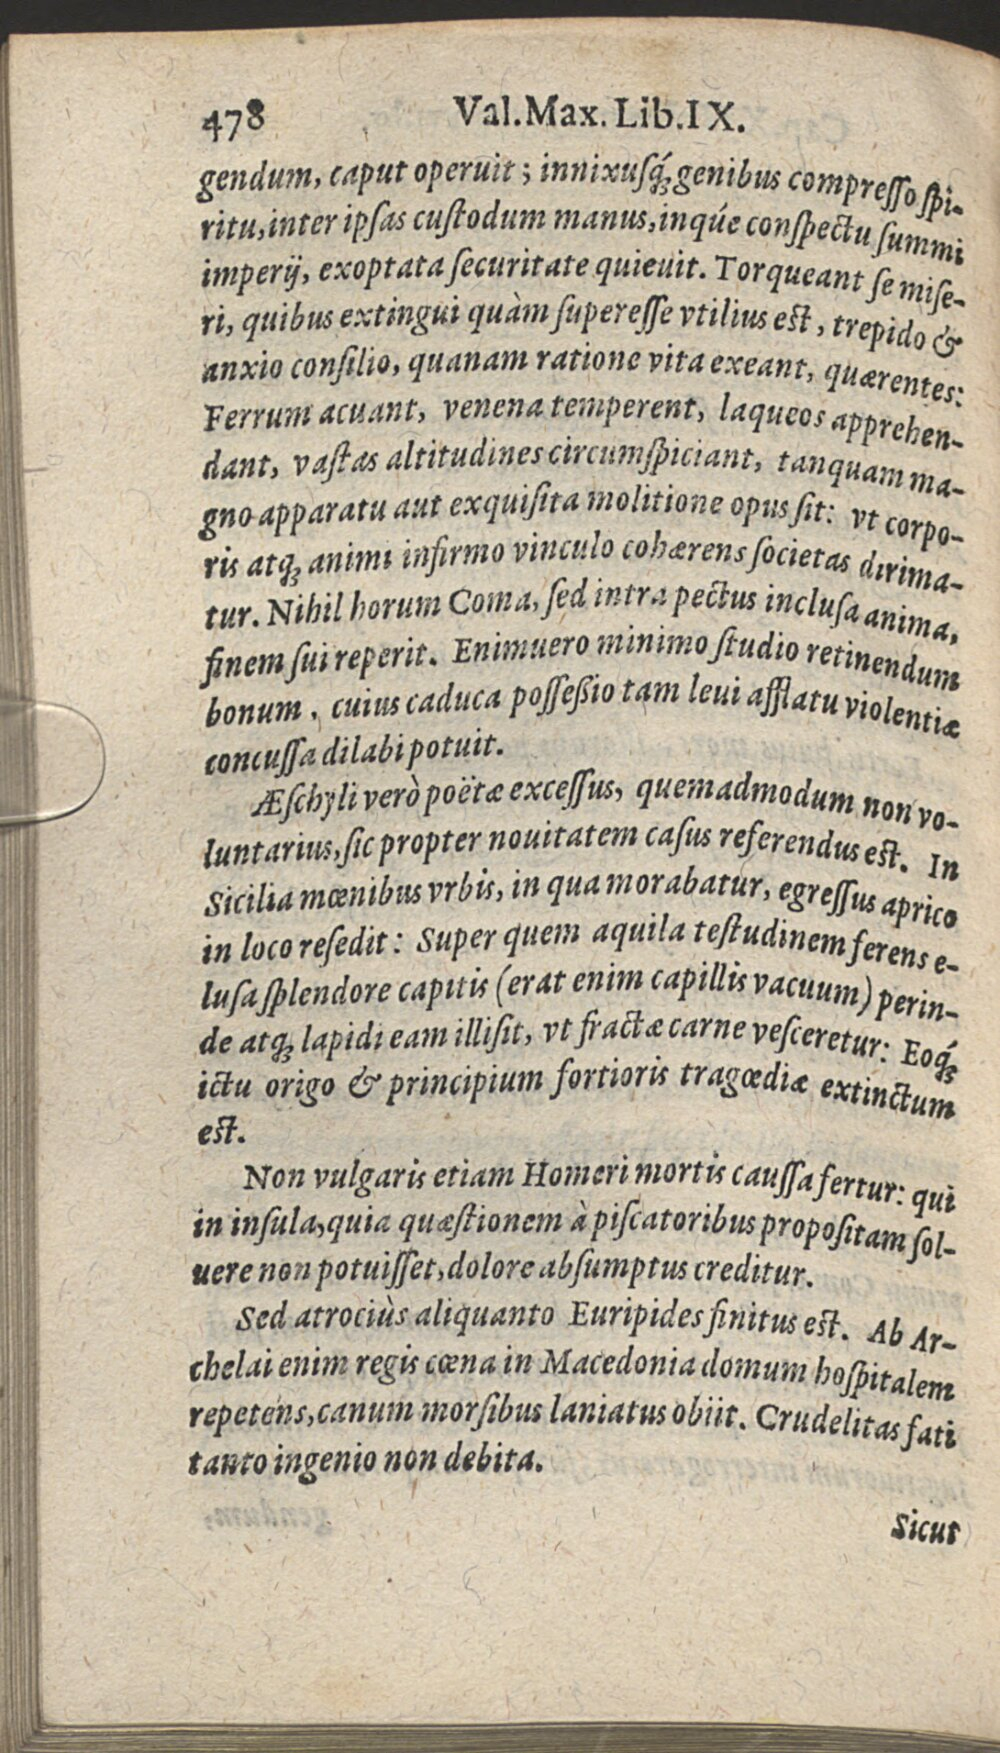 478 Val. Max. Lib. IX.
gendum, caput operuit; innixuſq́ꝫ genibus compreſſo ſpi-
ritu, inter ipſas cuſtodum manus, inq́ue conſpectu ſummi
imperij, exoptata ſecuritate quieuit. Torqueant ſe miſe-
ri, quibus extingui quàm ſupereſſe vtilius eſt, trepido &
anxio conſilio, quanam ratione vita exeant, quærentes:
Ferrum acuant, venena temperent, laqueos apprehen-
dant, vaſtas altitudines circumſpiciant, tanquam ma-
gno apparatu aut exquiſita molitione opus ſit: vt corpo-
ris atqꝫ animi infirmo vinculo cohærens ſocietas dirima-
tur. Nihil horum Coma, ſed intra pectus incluſa anima,
finem ſui reperit. Enimuero minimo ſtudio retinendum
bonum, cuius caduca poſſeßio tam leui afflatu violentiæ
concuſſa dilabi potuit.
Æſchyli verò poëtæ exceſſus, quemadmodum non vo-
luntarius, ſic propter nouitatem caſus referendus eſt. In
Sicilia mœnibus vrbis, in qua morabatur, egreſſus aprico
in loco reſedit: Super quem aquila teſtudinem ferens e-
luſa ſplendore capitis (erat enim capillis vacuum) perin-
de atqꝫ lapidi eam illiſit, vt fractæ carne veſceretur: Eoq́ꝫ
ictu origo & principium fortioris tragœdiæ extinctum
eſt.
Non vulgaris etiam Homeri mortis cauſſa fertur: qui
in inſula, quia quæſtionem à piſcatoribus propoſitam ſol-
uere non potuiſſet, dolore abſumptus creditur.
Sed atrociùs aliquanto Euripides finitus eſt. Ab Ar-
chelai enim regis cœna in Macedonia domum hoſpitalem
repetens, canum morſibus laniatus obiit. Crudelitas fati
tanto ingenio non debita.
Sicut